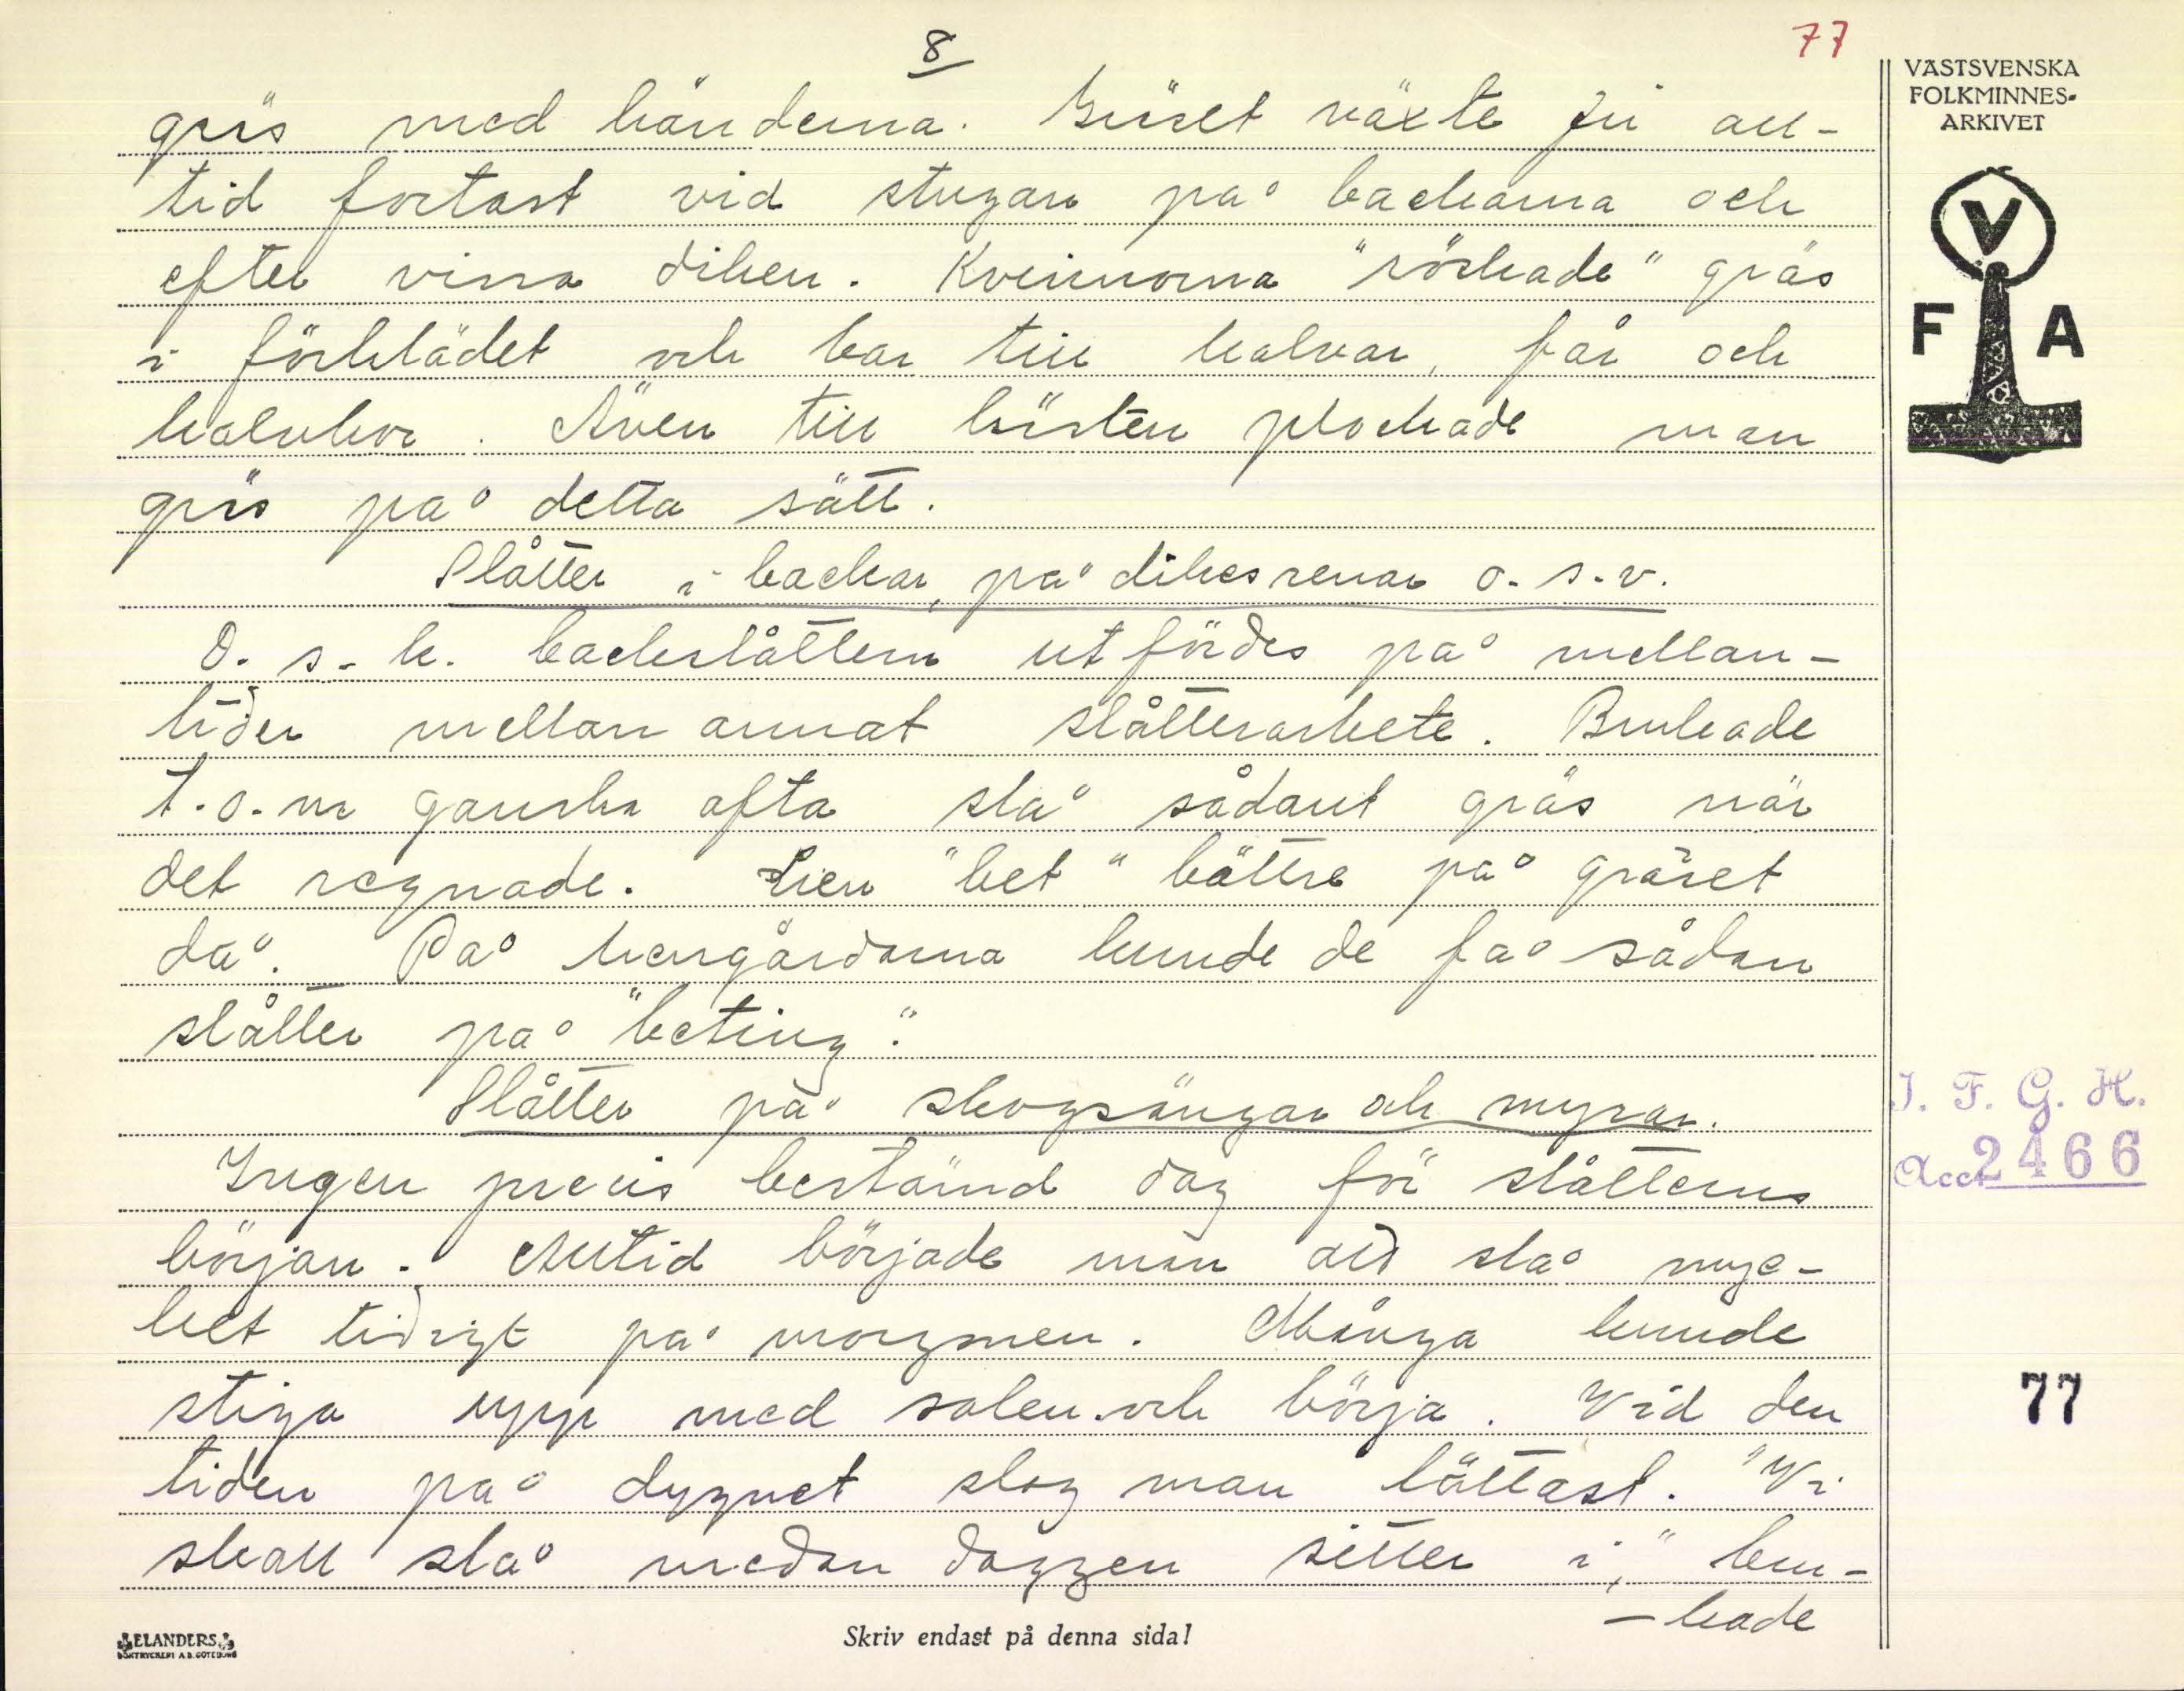 8
77
VÄSTSVENSKA
FOLKMINNES-
ARKIVET
V
F A
gräs med händerna. Gräset växte ju all-
tid fortast vid stugan på backarna och
efter vissa diken. Kvinnorna "röskade" gräs
i förklädet och bar till kalvar, får och
kalvkor. Även till hästen plockade man
gräs på detta sätt.
Slåtter i backar, på dikesrenar o.s.v.
D.s.k. backslåttern utfördes på mellan-
tider mellan annat slåtterarbete. Brukade
t.o.m ganska ofta slå sådant gräs när
det regnade. Lien "bet" bättre på gräset
då. På herrgårdarna kunde de få sådan
slåtter på "beting".
Slåtter på skogsängar och myrar.
Ingen precis bestämd dag för slåtterns
början. Alltid började man att slå myc-
ket tidigt på morgonen. Många kunde
stiga upp med solen och börja. Vid den
tiden på dygnet slog man lättast. "Vi
skall slå medan daggen sitter i," bru-
-kade
I. F. G. H.
Acc. 2466
77
ELANDERS
BOKTRYCKERI A.B. GÖTEBORG
Skriv endast på denna sida!